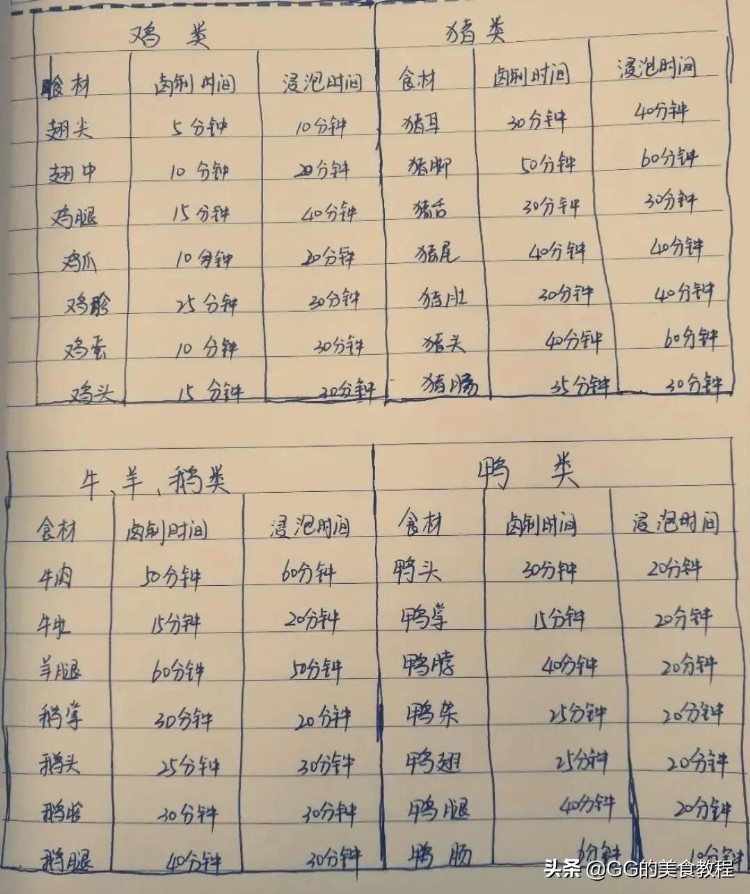 鸡类 猪类
食材 卤制时间 浸泡时间 食材 卤制时间 浸泡时间
翅尖 5分钟 10分钟 猪耳 30分钟 40分钟
翅中 10分钟 20分钟 猪脚 50分钟 60分钟
鸡腿 15分钟 40分钟 猪舌 30分钟 30分钟
鸡爪 10分钟 20分钟 猪尾 40分钟 40分钟
鸡胗 25分钟 30分钟 猪肚 30分钟 40分钟
鸡蛋 10分钟 30分钟 猪头 40分钟 60分钟
鸡头 15分钟 20分钟 猪肠 35分钟 30分钟
牛、羊、鹅类 鸭类
食材 卤制时间 浸泡时间 食材 卤制时间 浸泡时间
牛肉 50分钟 60分钟 鸭头 30分钟 20分钟
15分钟 20分钟 鸭掌 15分钟 20分钟
羊腿 60分钟 50分钟 鸭脖 40分钟 20分钟
鹅掌 30分钟 20分钟 鸭架 25分钟 20分钟
鹅头 25分钟 30分钟 鸭翅 25分钟 20分钟
鹅胗 30分钟 30分钟 鸭腿 40分钟 20分钟
鹅腿 40分钟 30分钟 鸭肠 分钟 分钟
头条 @GG的美食教程